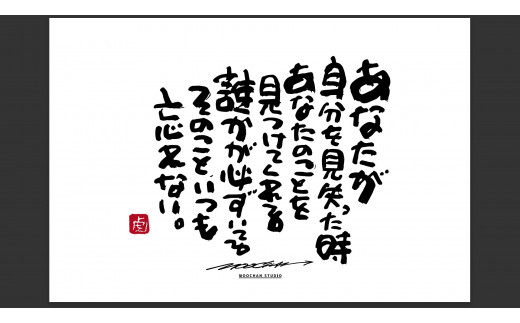 あなたが
身分を見笑った時
あなたのことを
見つけてくれる
誰かが必ずいても
そのこといつも
忘れない。
虎
MOOCHAN
MOOCHAN STUDIO